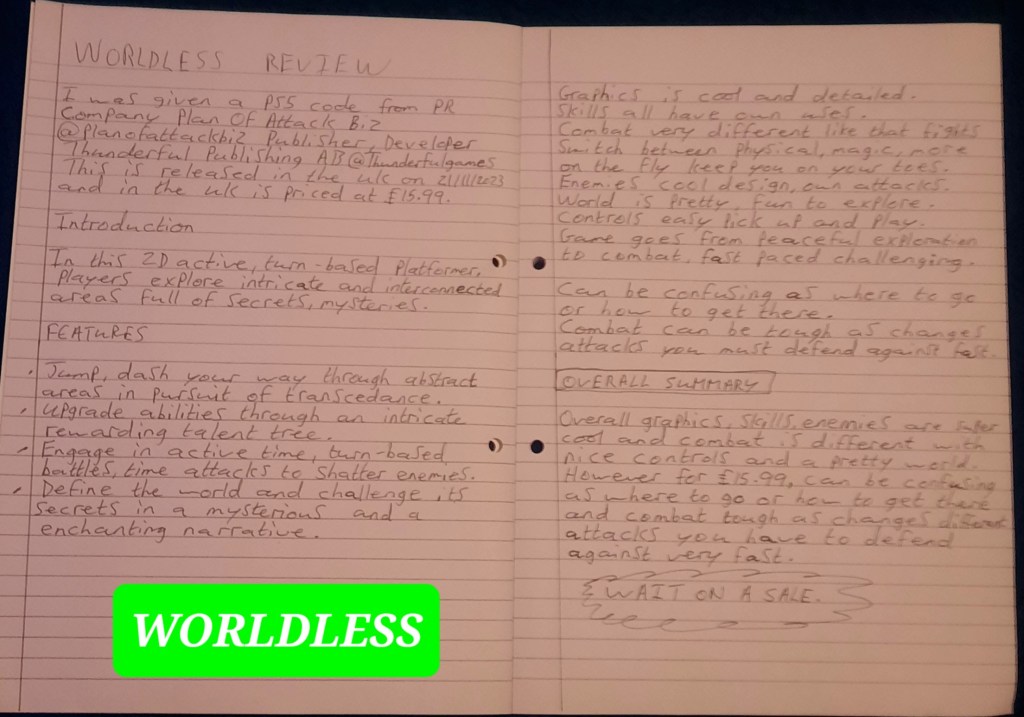 WORLDLESS REVIEW
I was given a PS5 code from PR
Company Plan Of Attack Biz
@planofattackbiz Publisher, Developer
Thunderful Publishing AB @Thunderfulgames
This is released in the uk on 21/11/2023
and in the uk is priced at £15.99.
Introduction
In this 2D active, turn-based platformer,
players explore intricate and interconnected
areas full of secrets, mysteries.
FEATURES
• Jump, dash your way through abstract
areas in pursuit of transcedance.
• Upgrade abilities through an intricate
rewarding talent tree.
• Engage in active time, turn-based
battles, time attacks to shatter enemies.
• Define the world and challenge its
secrets in a mysterious and a
enchanting narrative.
Graphics is cool and detailed.
Skills all have own uses.
Combat very different like that fights
switch between physical, magic, more
on the fly keep you on your toes.
Enemies cool design, own attacks.
World is pretty, fun to explore.
Controls easy pick up and play.
Game goes from peaceful exploration
to combat, fast paced challenging.
Can be confusing as where to go
or how to get there.
Combat can be tough as changes
attacks you must defend against fast.
OVERALL SUMMARY
Overall graphics, skills, enemies are super
cool and combat is different with
nice controls and a pretty world.
However for £15.99, can be confusing
as where to go or how to get there
and combat tough as changes different
attacks you have to defend
against very fast.
WAIT ON A SALE.
WORLDLESS